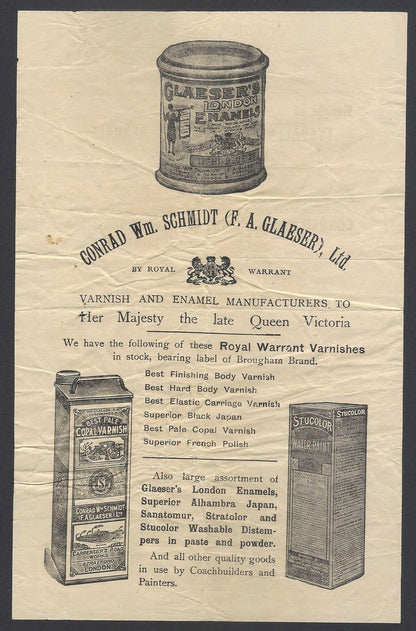 GLAESER'S
LONDON
ENAMELS
CONRAD Wm. SCHMIDT (F. A. GLAESER), Ltd.
BY ROYAL WARRANT
VARNISH AND ENAMEL MANUFACTURERS TO
Her Majesty the late Queen Victoria
We have the following of these Royal Warrant Varnishes
in stock, bearing label of Brougham Brand.
Best Finishing Body Varnish
Best Hard Body Varnish
Best Elastic Carriage Varnish
Superior Black Japan
Best Pale Copal Varnish
Superior French Polish
BEST PALE
COPAL VARNISH
CONRAD Wm SCHMIDT
(F.A.GLAESER) LTD
CARPENTER'S ROAD
WORKS
STRATFORD
LONDON
STUCOLOR
STUCOLOR
WATER PAINT
Also large assortment of
Glaeser's London Enamels,
Superior Alhambra Japan,
Sanatomur, Stratolor and
Stucolor Washable Distem-
pers in paste and powder.
And all other quality goods
in use by Coachbuilders and
Painters.